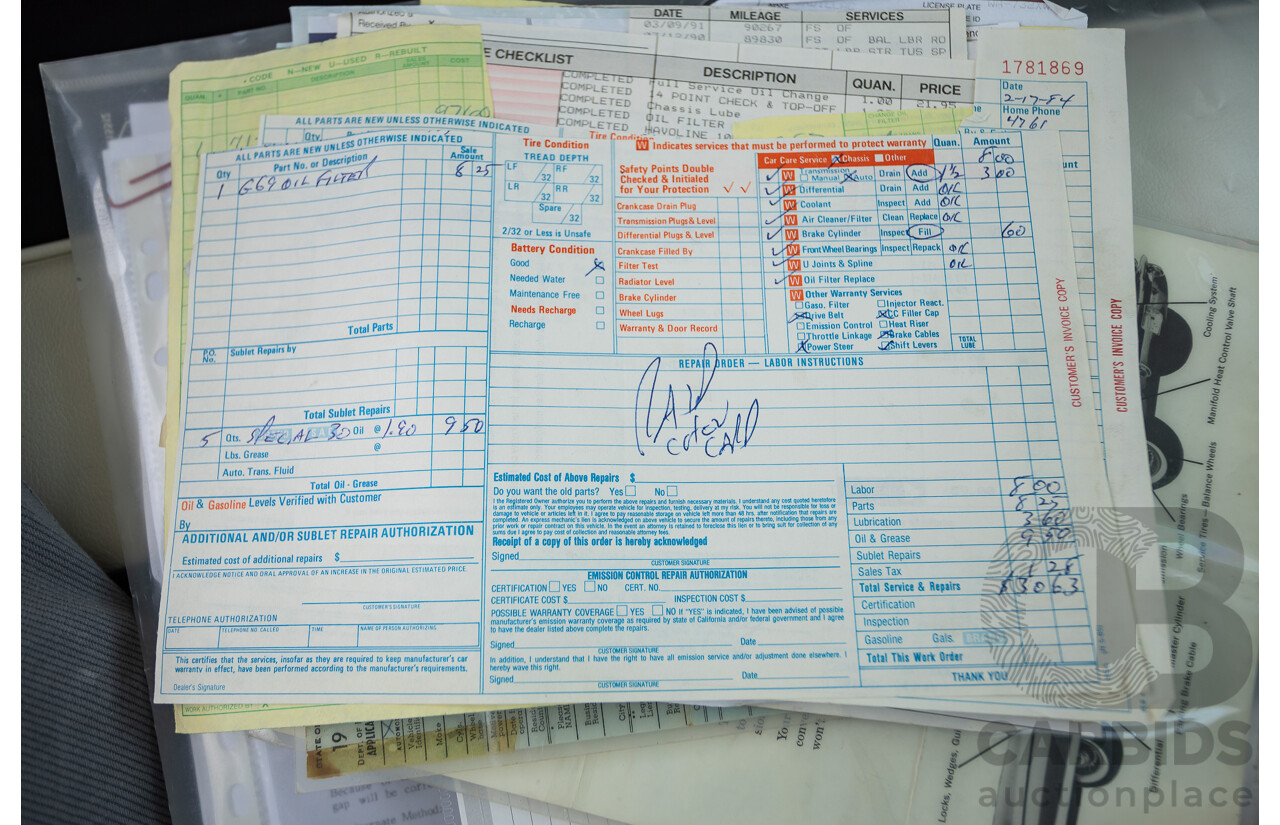 DATE MILEAGE SERVICES
03/09/91 90267 FS OF
89830 FS OF BAL LBR RO
LICENSE PLATE
CODE N—NEW U—USED R—REBUILT
QUAN. PART NO. DESCRIPTION COST
E CHECKLIST
DESCRIPTION QUAN. PRICE
COMPLETED Full Service Oil Change 1.00 21.95
COMPLETED 14 POINT CHECK & TOP-OFF
COMPLETED Chassis Lube
COMPLETED OIL FILTER
COMPLETED HAVOLINE
1781869
Date
2-17-84
Home Phone
4761
ALL PARTS ARE NEW UNLESS OTHERWISE INDICATED
ALL PARTS ARE NEW UNLESS OTHERWISE INDICATED
Qty Part No. or Description Sale Amount
1 G69 OIL FILTER 8 25
Total Parts
P.O. No. Sublet Repairs by
Total Sublet Repairs
5 Qts. SPECIAL 30 Oil @ 1.90 9 50
Lbs. Grease @
Auto. Trans. Fluid
Total Oil - Grease
Oil & Gasoline Levels Verified with Customer
By
ADDITIONAL AND/OR SUBLET REPAIR AUTHORIZATION
Estimated cost of additional repairs $
I ACKNOWLEDGE NOTICE AND ORAL APPROVAL OF AN INCREASE IN THE ORIGINAL ESTIMATED PRICE.
CUSTOMER'S SIGNATURE
TELEPHONE AUTHORIZATION
DATE TELEPHONE NO. CALLED TIME NAME OF PERSON AUTHORIZING
This certifies that the services, insofar as they are required to keep manufacturer's car
warranty in effect, have been performed according to the manufacturer's requirements.
Dealer's Signature
Tire Condition
TREAD DEPTH
LF /32 RF /32
LR /32 RR /32
Spare /32
2/32 or Less is Unsafe
Battery Condition
Good
Needed Water
Maintenance Free
Needs Recharge
Recharge
W Indicates services that must be performed to protect warranty Quan. Amount
Safety Points Double
Checked & Initialed
for Your Protection
Crankcase Drain Plug
Transmission Plugs & Level
Differential Plugs & Level
Crankcase Filled By
Filter Test
Radiator Level
Brake Cylinder
Wheel Lugs
Warranty & Door Record
Car Care Service Chassis Other 8 00
W Transmission Manual Auto Drain Add 1/2 3 00
W Differential Drain Add OK
W Coolant Inspect Add OK
W Air Cleaner/Filter Clean Replace OK
W Brake Cylinder Inspect Fill 60
W Front Wheel Bearings Inspect Repack OK
W U Joints & Spline OK
W Oil Filter Replace
W Other Warranty Services
Gaso. Filter Injector React.
Drive Belt CC Filler Cap
Emission Control Heat Riser
Throttle Linkage Brake Cables
Power Steer Shift Levers
TOTAL LUBE
REPAIR ORDER — LABOR INSTRUCTIONS
Estimated Cost of Above Repairs $
Do you want the old parts? Yes No
I the Registered Owner authorize you to perform the above repairs and furnish necessary materials. I understand any cost quoted heretofore
is an estimate only. Your employees may operate vehicle for inspection, testing, delivery at my risk. You will not be responsible for loss or
damage to vehicle or articles left in it. I agree to pay reasonable storage on vehicle left more than 48 hrs. after notification that repairs are
completed. An express mechanic's lien is acknowledged on above vehicle to secure the amount of repairs thereto, including those from any
prior work or repair contract on this vehicle. In the event an attorney is retained to foreclose this lien or to bring suit for collection of any
sums due I agree to pay cost of collection and reasonable attorney fees.
Receipt of a copy of this order is hereby acknowledged
Signed
CUSTOMER SIGNATURE
EMISSION CONTROL REPAIR AUTHORIZATION
CERTIFICATION YES NO CERT. NO.
CERTIFICATE COST $ INSPECTION COST $
POSSIBLE WARRANTY COVERAGE YES NO If "YES" is indicated, I have been advised of possible
manufacturer's emission warranty coverage as required by state of California and/or federal government and I agree
to have the dealer listed above complete the repairs.
Signed Date
CUSTOMER SIGNATURE
In addition, I understand that I have the right to have all emission service and/or adjustment done elsewhere. I
hereby wave this right.
Signed Date
CUSTOMER SIGNATURE
Labor 8 00
Parts 8 25
Lubrication 3 60
Oil & Grease 9 50
Sublet Repairs
Sales Tax 1 28
Total Service & Repairs $30 63
Certification
Inspection
Gasoline Gals.
Total This Work Order
THANK YOU
CUSTOMER'S INVOICE COPY
CUSTOMER'S INVOICE COPY
Cooling System
Manifold Heat Control Valve Shaft
Service Tires – Balance Wheels
Wheel Bearings
Brake Cable
Differential
Locks, Wedges,
CARBIDS
auctionplace